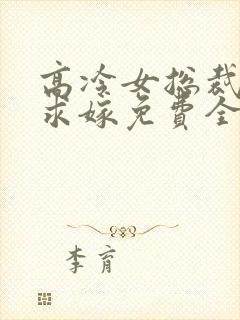 高冷女总裁
求嫁免費全
李育